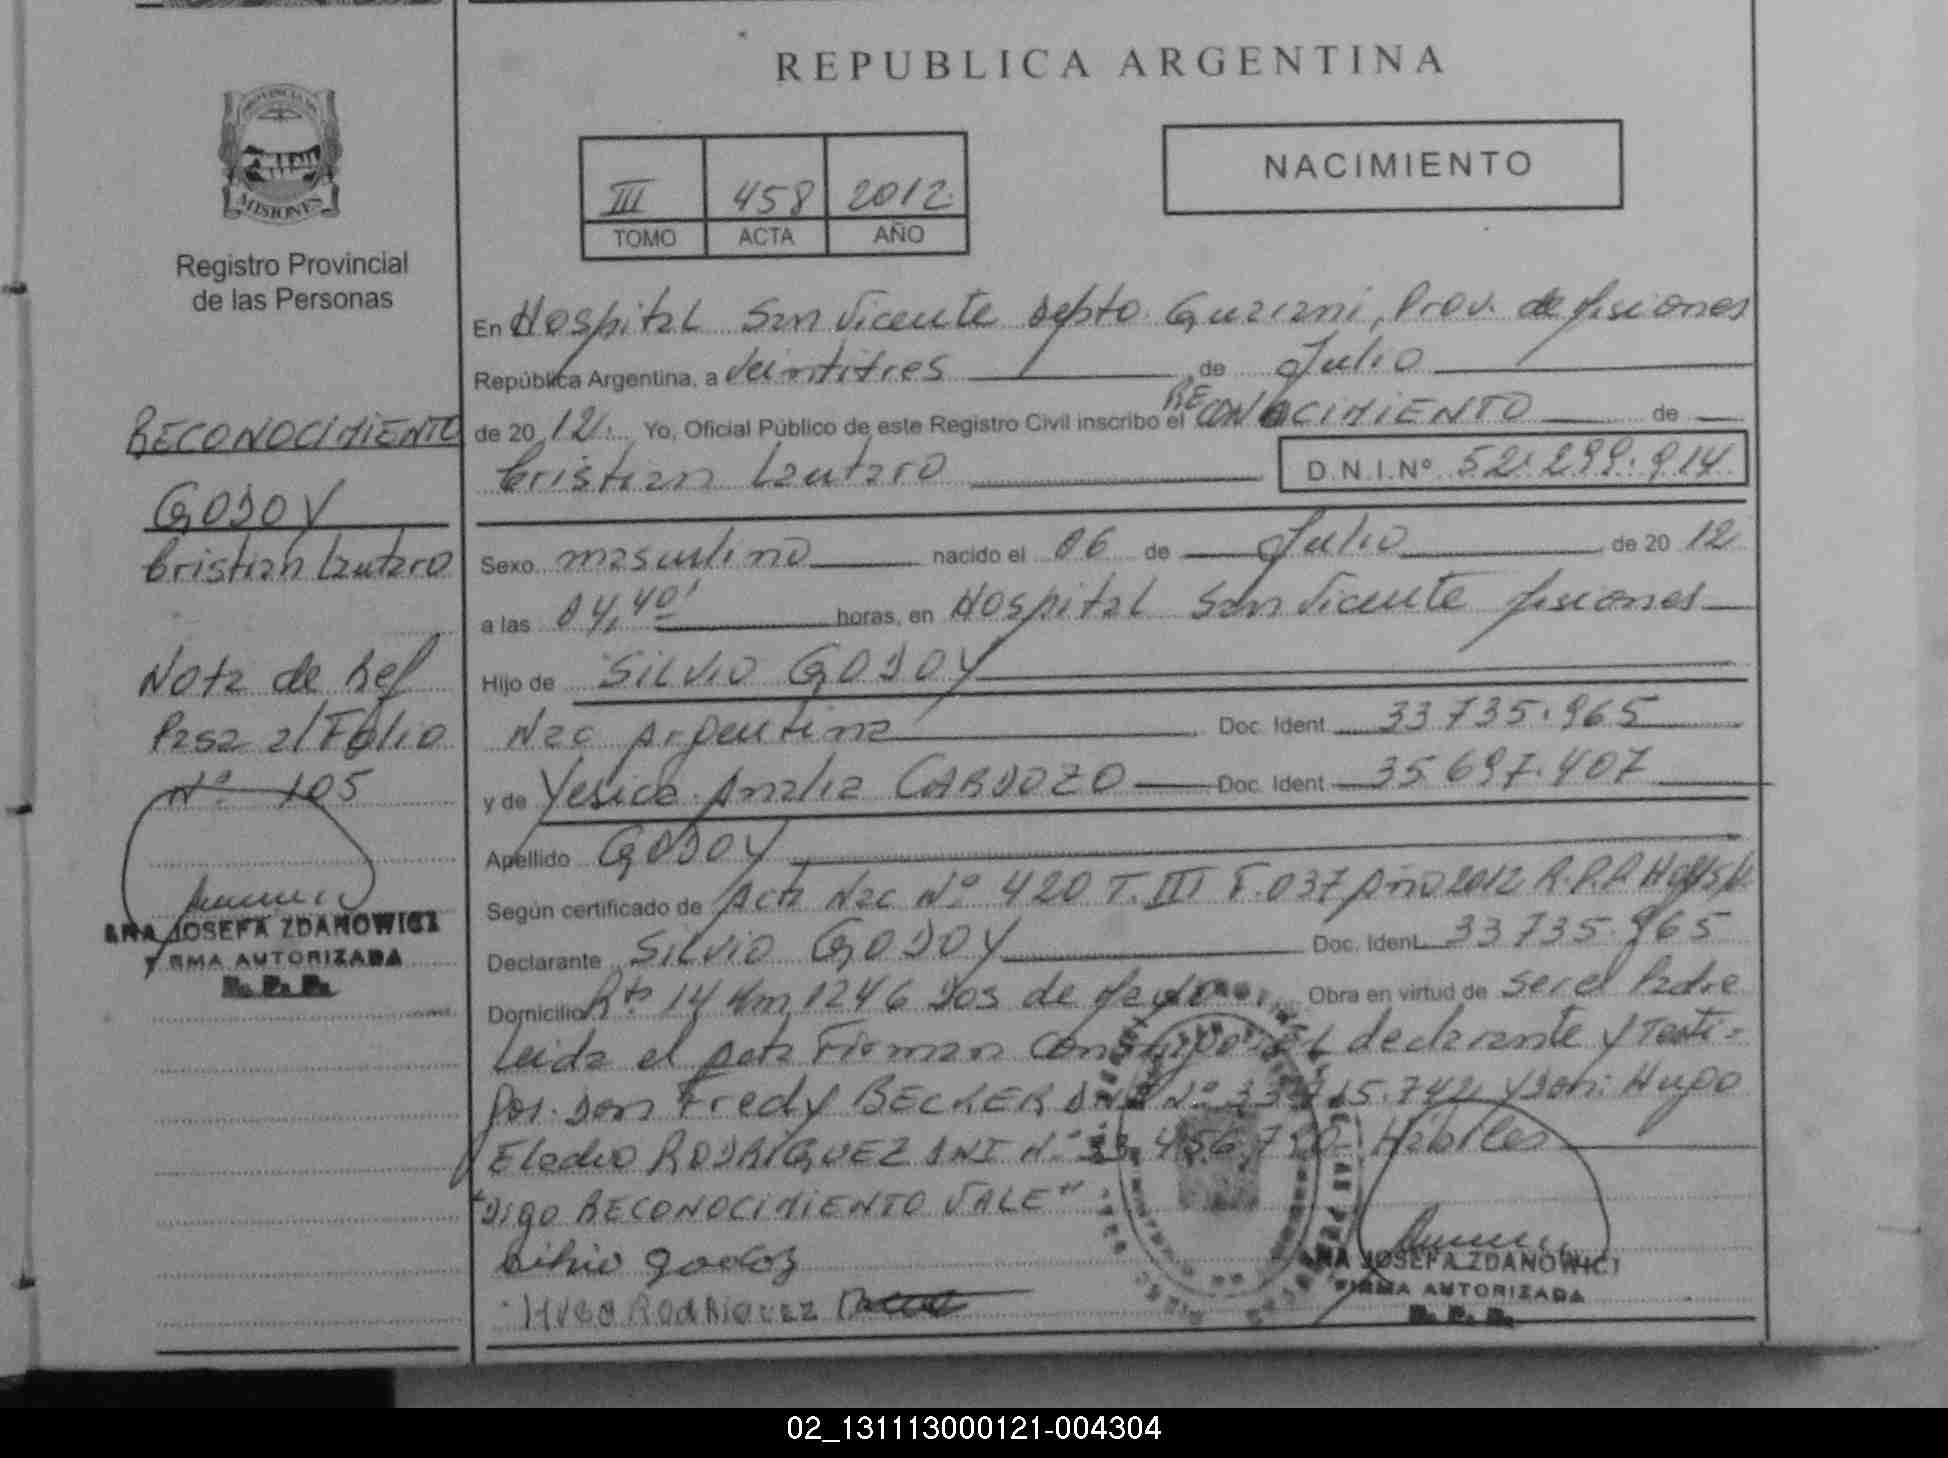 REPUBLICA ARGENTINA
PROVINCIA DE
MISIONES
Registro Provincial
de las Personas
III 458 2012
TOMO ACTA AÑO
NACIMIENTO
RECONOCIMIENTO
GODOY
Cristian Lautaro
Nota de Ref
Pasa al Folio
Nº 105
ANA JOSEFA ZDANOWICZ
FIRMA AUTORIZADA
R. P. P.
En Hospital San Vicente Depto. Guarani, Prov. de Misiones
República Argentina, a Veintitres de Julio
de 20 12. Yo, Oficial Público de este Registro Civil inscribo el RECONOCIMIENTO de
Cristian Lautaro D.N.I.Nº 52.299.914
Sexo masculino nacido el 06 de Julio de 20 12
a las 04,40' horas, en Hospital San Vicente Misiones
Hijo de SILVIO GODOY
Nac Argentina Doc. Ident 33735.965
y de Yesica Analia CARDOZO Doc. Ident 35697.407
Apellido GODOY
Según certificado de Acta Nac Nº 420 T. III F. 037 Año 2012 R.P.P.
Declarante SILVIO GODOY Doc. Ident. 33735.965
Domicilio Rta 14 Km 1246 Dos de Mayo Obra en virtud de ser el Padre
Leida el Acta Firman Conmigo el declarante y Testi=
gos. Don Fredy BECKER DNI Nº y Don: Hugo
Eladio RODRIGUEZ DNI Nº Habiles
"Digo RECONOCIMIENTO VALE"
Silvio Godoy
HUGO RODRIGUEZ
ANA JOSEFA ZDANOWICZ
FIRMA AUTORIZADA
R. P. P.
02_131113000121-004304